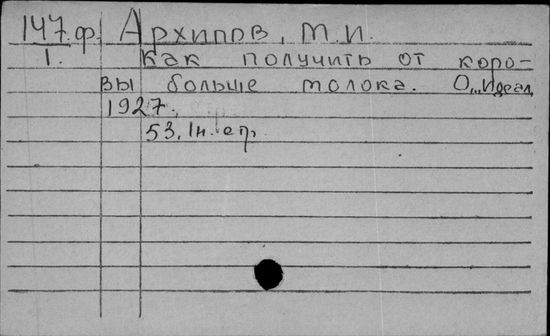 147.ф. Архипов, М.И.
1. Как получить от коро-
вы больше молока. О., "Идеал,
1927.
53, 1н. стр.